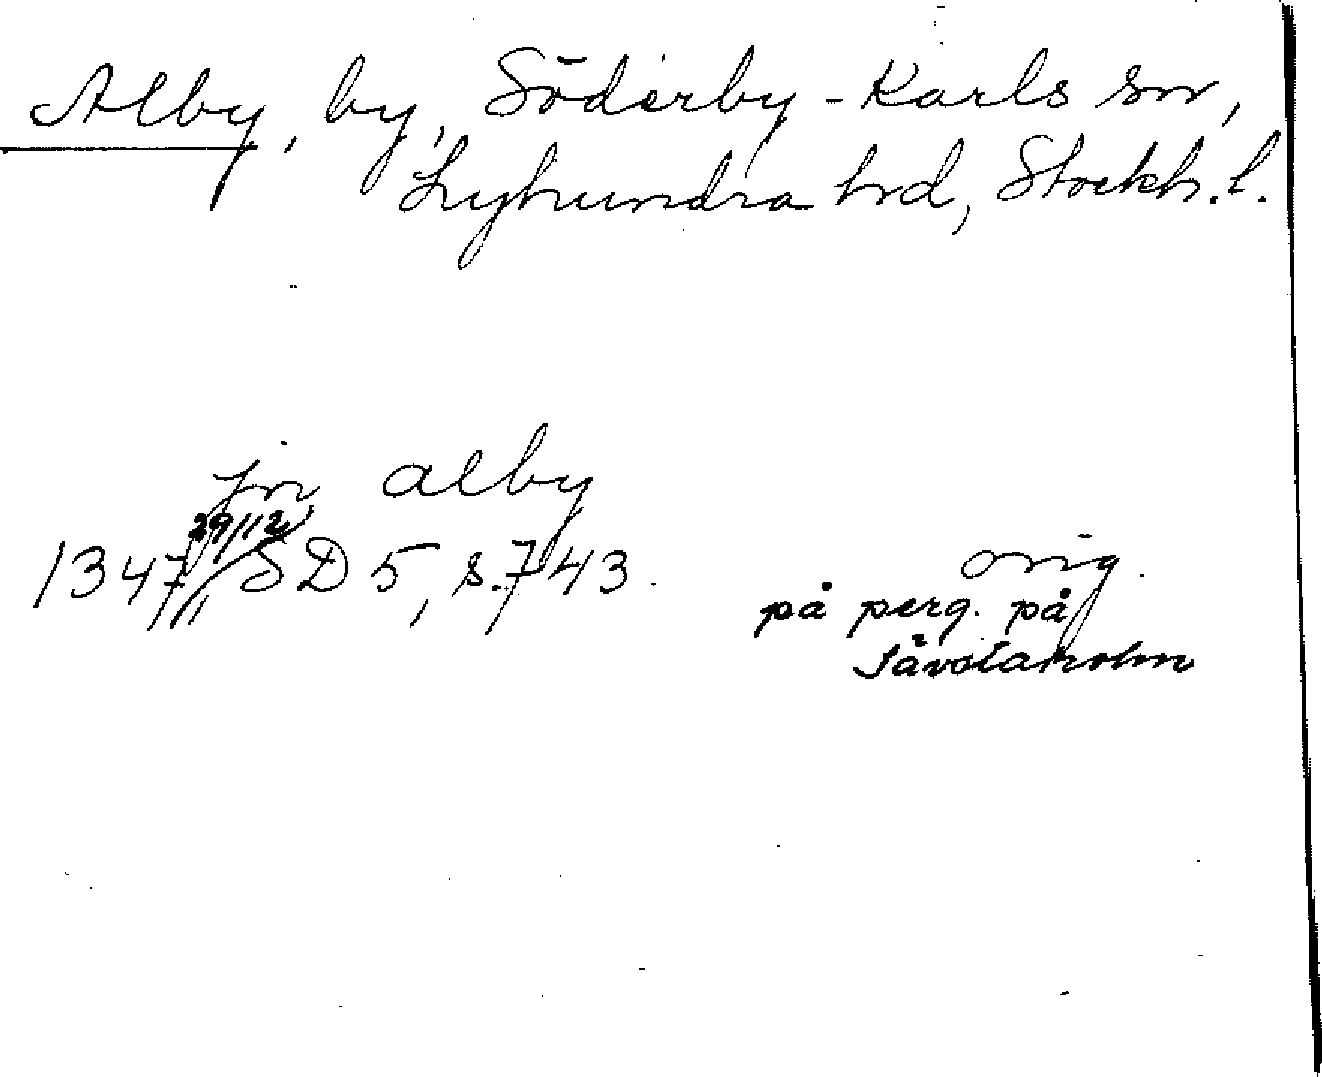 Alby, by, Söderby-Karls sn,
Lyhundra hrd, Stockh. l.
jn alby
29/12
1347 SD 5, s. 743.
orig.
på perg. på
Sävstaholm